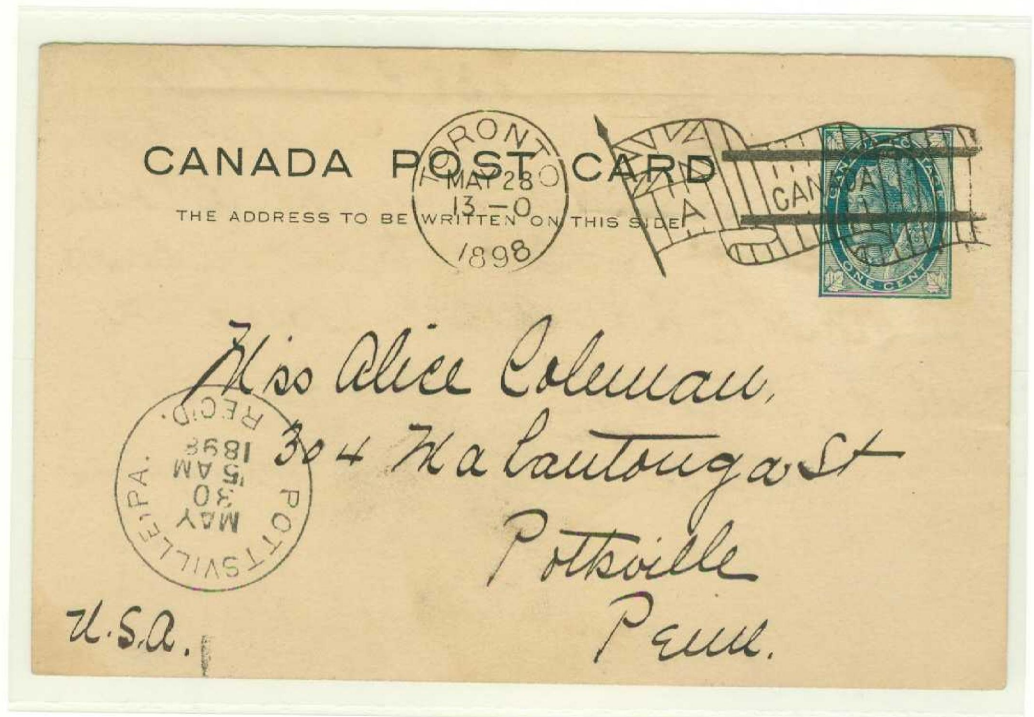 CANADA POST CARD
THE ADDRESS TO BE WRITTEN ON THIS SIDE
TORONTO
MAY 28
13-0
1898
CANADA
CANADA POSTAGE
ONE CENT
Miss Alice Coleman,
304 Mahantonga St
Pottsville
Penn.
U.S.A.
POTTSVILLE, PA.
MAY
30
5 AM
1898
REC'D.